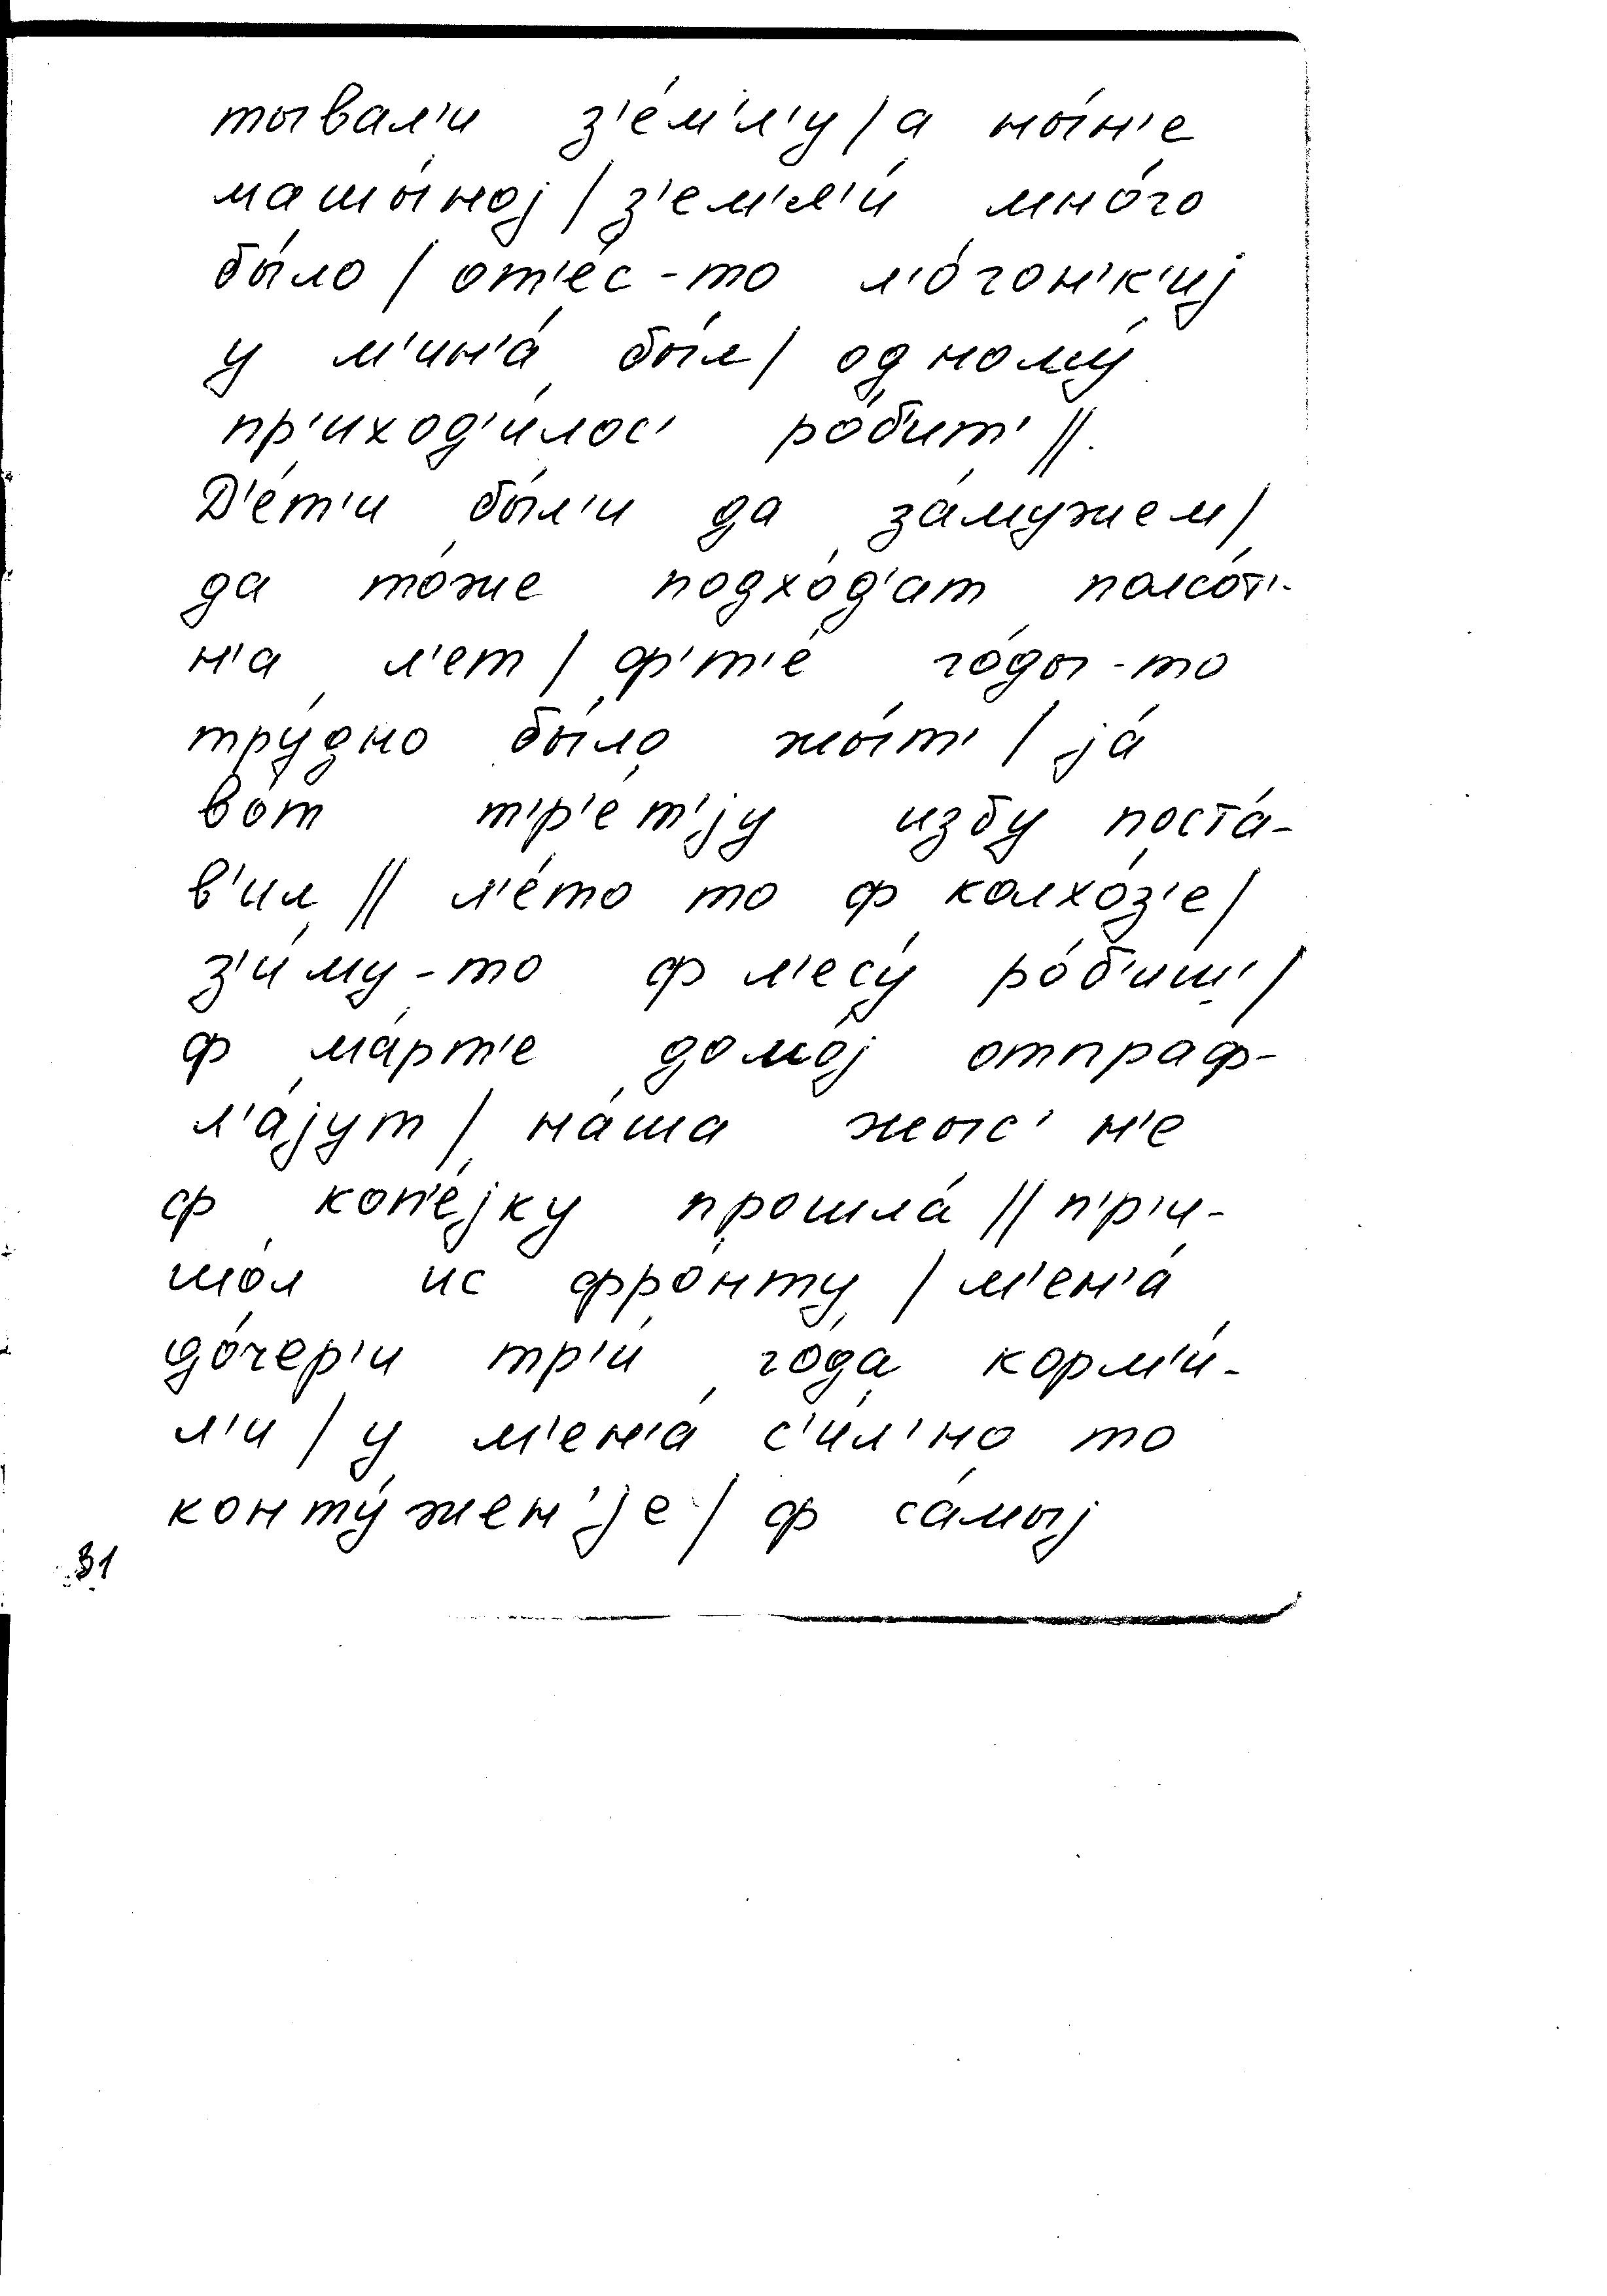 тывал'и з'е́м'л'у / а ны́н'е
машы́ноj / з'ем'л'и́ мно́го
бы́ло / от'е́с-то л'о́гон'к'иj
у м'ин'а́ бы́л / одному́
пр'иход'и́лос' ро́б'ит' //.
Д'е́т'и бы́л'и да за́мужем /
да то́же подхо́д'ат полсо́т'-
н'а л'ет / ф'т'е́ го́ды-то
тру́дно бы́ло жы́т' / jа́
во́т т'р'е́т'jу избу поста́-
в'ил // л'е́то то ф колхо́з'е /
з'и́му-то ф л'есу́ ро́б'иш' /
ф ма́рт'е домо́j отпраф-
л'а́jут / на́ша жыс' н'е
ф коп'е́jку прошла́ // п'р'и-
шо́л ис фро́нту / м'ен'а́
до́чер'и тр'и́ го́да корм'и́-
л'и / у м'ен'а́ с'и́л'но то
конту́жен'jе / ф са́мыj
31